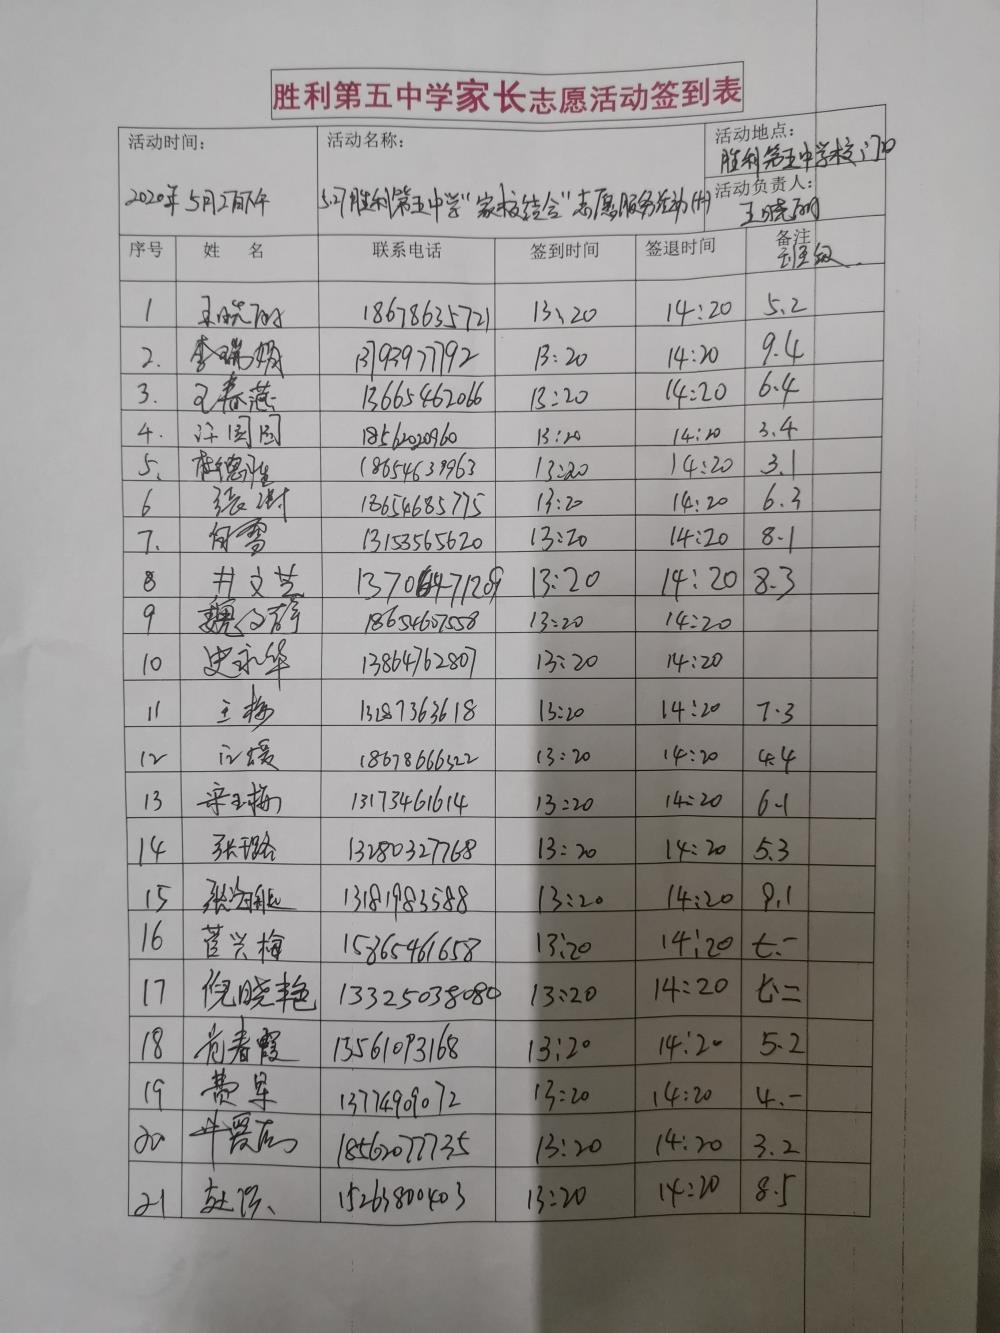 胜利第五中学家长志愿活动签到表
活动时间: 活动名称: 活动地点:
胜利第五中学校门口
2020年5月27日下午 5.27胜利第五中学"家校结合"志愿服务活动 活动负责人:
王晓丽
序号 姓 名 联系电话 签到时间 签退时间 备注
班级
1 王晓丽 18678635721 13:20 14:20 5.2
2. 李瑞娟 13793977792 13:20 14:20 9.4
3. 王春燕 13665462066 13:20 14:20 6.4
4. 许园园 18562020960 13:20 14:20 3.4
5. 18654639963 13:20 14:20 3.1
6 张 18654685775 13:20 14:20 6.3
7. 付雪 13153565620 13:20 14:20 8.1
8 井文芝 13706471209 13:20 14:20 8.3
9 魏 18654607558 13:20 14:20
10 史永华 13864762807 13:20 14:20
11 王梅 13287363618 13:20 14:20 7.3
12 18678666322 13:20 14:20 4.4
13 宋玉梅 13173461614 13:20 14:20 6.1
14 张璐 13280327768 13:20 14:20 5.3
15 张 13181983588 13:20 14:20 8.1
16 菅兴梅 15865461658 13:20 14:20 七.一
17 倪晓艳 13325038080 13:20 14:20 七.二
18 肖春霞 13561093168 13:20 14:20 5.2
19 费 13774909072 13:20 14:20 4.一
20 18562077735 13:20 14:20 3.2
21 15263800403 13:20 14:20 8.5